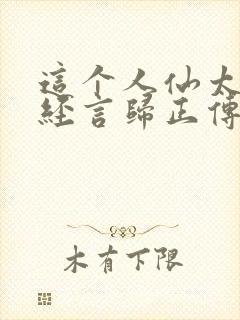 這个人仙太
經言歸正傳
木有下限